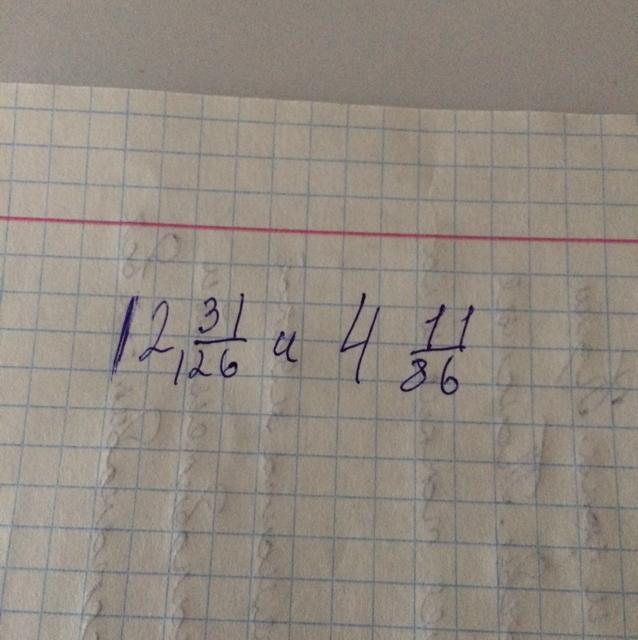 12 31/126 и 4 11/86